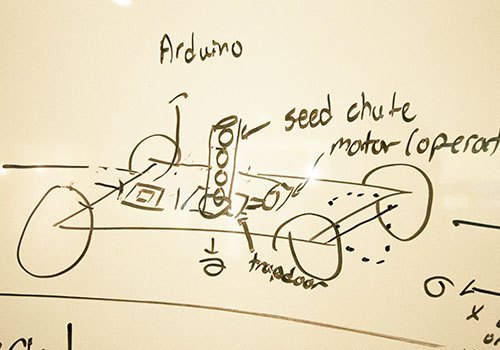 Arduino
seed chute
motor (operat
trapdoor
x